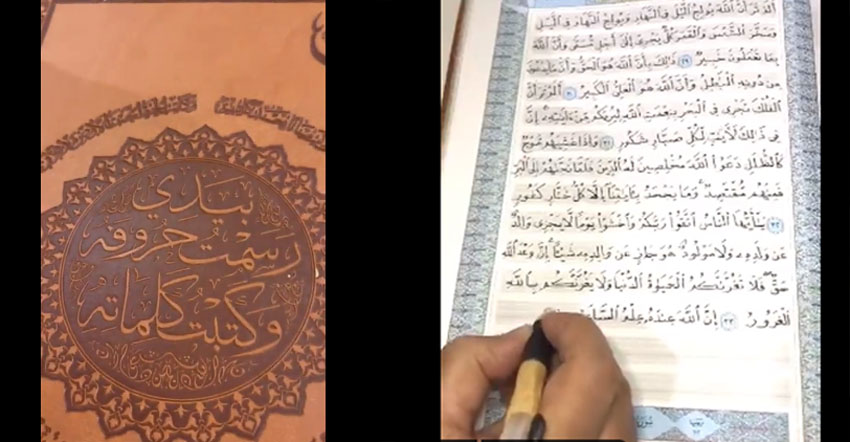 بيدي
رسمت حروفه
وكتبت كلماته
أَلَمْ تَرَ أَنَّ ٱللَّهَ يُولِجُ ٱلَّيْلَ فِى ٱلنَّهَارِ وَيُولِجُ ٱلنَّهَارَ فِى ٱلَّيْلِ
وَسَخَّرَ ٱلشَّمْسَ وَٱلْقَمَرَ كُلٌّ يَجْرِىٓ إِلَىٰٓ أَجَلٍ مُّسَمًّى وَأَنَّ ٱللَّهَ
بِمَا تَعْمَلُونَ خَبِيرٌ ٢٩ ذَٰلِكَ بِأَنَّ ٱللَّهَ هُوَ ٱلْحَقُّ وَأَنَّ مَا يَدْعُونَ
مِن دُونِهِ ٱلْبَٰطِلُ وَأَنَّ ٱللَّهَ هُوَ ٱلْعَلِىُّ ٱلْكَبِيرُ ٣٠ أَلَمْ تَرَ أَنَّ
ٱلْفُلْكَ تَجْرِى فِى ٱلْبَحْرِ بِنِعْمَتِ ٱللَّهِ لِيُرِيَكُم مِّنْ ءَايَٰتِهِۦٓ إِنَّ
فِى ذَٰلِكَ لَءَايَٰتٍ لِّكُلِّ صَبَّارٍ شَكُورٍ ٣١ وَإِذَا غَشِيَهُم مَّوْجٌ
كَٱلظُّلَلِ دَعَوُا۟ ٱللَّهَ مُخْلِصِينَ لَهُ ٱلدِّينَ فَلَمَّا نَجَّىٰهُمْ إِلَى ٱلْبَرِّ
فَمِنْهُم مُّقْتَصِدٌ وَمَا يَجْحَدُ بِـَٔايَٰتِنَآ إِلَّا كُلُّ خَتَّارٍ كَفُورٍ
٣٢ يَٰٓأَيُّهَا ٱلنَّاسُ ٱتَّقُوا۟ رَبَّكُمْ وَٱخْشَوْا۟ يَوْمًا لَّا يَجْزِى وَالِدٌ
عَن وَلَدِهِۦ وَلَا مَوْلُودٌ هُوَ جَازٍ عَن وَالِدِهِۦ شَيْـًٔا إِنَّ وَعْدَ ٱللَّهِ
حَقٌّ فَلَا تَغُرَّنَّكُمُ ٱلْحَيَوٰةُ ٱلدُّنْيَا وَلَا يَغُرَّنَّكُم بِٱللَّهِ
ٱلْغَرُورُ ٣٣ إِنَّ ٱللَّهَ عِندَهُۥ عِلْمُ